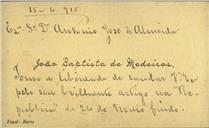 15-6-915
Exº Sr Dr Antonio José d'Almeida
João Baptista de Medeiros.
Tomo a liberdade de saudar V. Ex
pelo seu brilhante artigo na "Re-
publica" de 26 de Maio findo.
Faial - Horta